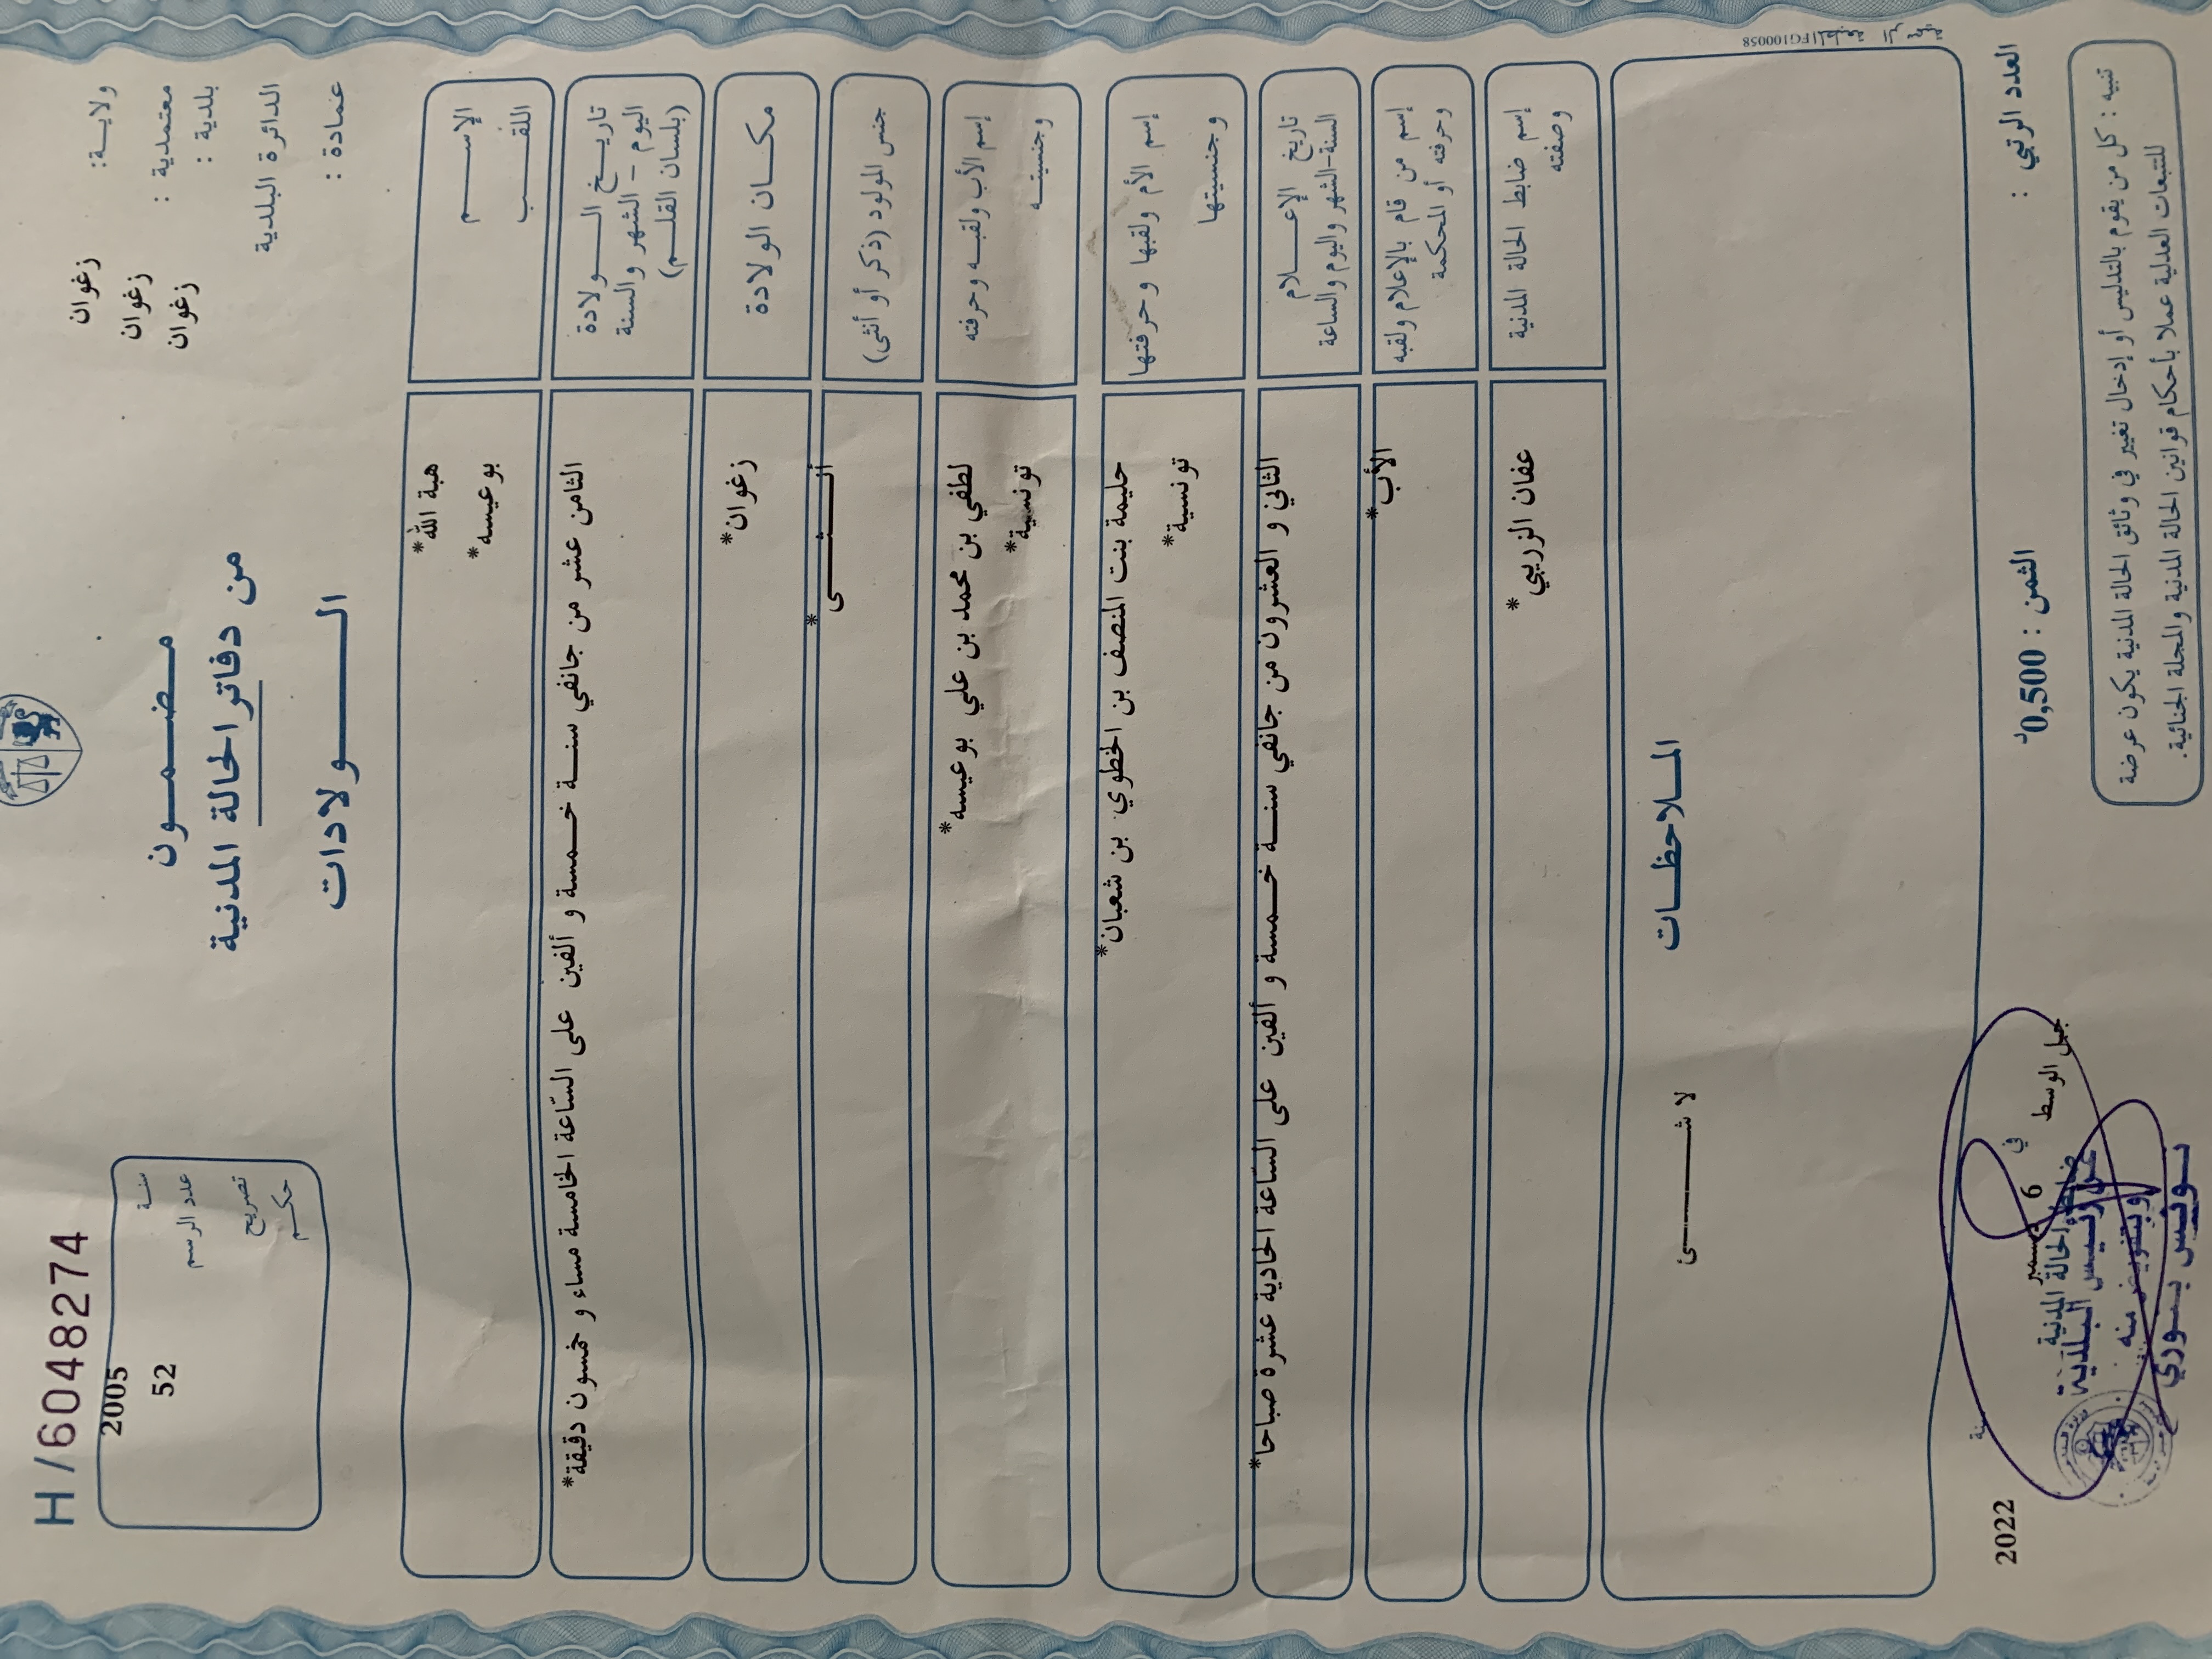 H/6048274
ولاية: زغوان
معتمدية : زغوان
بلدية : زغوان
الدائرة البلدية
عمادة :
مضمون
من دفاتر الحالة المدنية
الولادات
سنة 2005
عدد الرسم 52
تصريح
حكم
الإسم هبة الله*
اللقب بوعيسه*
تاريخ الولادة
اليوم - الشهر والسنة
(بلسان القلم)
الثامن عشر من جانفي سنة خمسة و ألفين على الساعة الخامسة مساء و خمسون دقيقة*
مكان الولادة زغوان*
جنس المولود (ذكر أو أنثى) أنثى*
إسم الأب ولقبه وحرفته لطفي بن محمد بن علي بوعيسه*
وجنسيته تونسية*
إسم الأم ولقبها وحرفتها حليمة بنت المنصف بن الخطوي بن شعبان*
وجنسيتها تونسية*
تاريخ الإعلام
السنة-الشهر واليوم والساعة
الثاني و العشرون من جانفي سنة خمسة و ألفين على الساعة الحادية عشرة صباحا*
إسم من قام بالإعلام ولقبه
وحرفته أو المحكمة
الأب*
إسم ضابط الحالة المدنية
وصفته
عفان الزريبي*
الملاحظات
لا شئ
المطبعة الرسمية FG100058
العدد الرتبي :
الثمن : 0,500د
جبل الوسط في 6 ديسمبر سنة 2022
ضابط الحالة المدنية
عن رئيس البلدية
وبتفويض منه
تنبيه : كل من يقوم بالتدليس أو إدخال تغيير في وثائق الحالة المدنية يكون عرضة
للتتبعات العدلية عملا بأحكام قوانين الحالة المدنية والمجلة الجنائية.